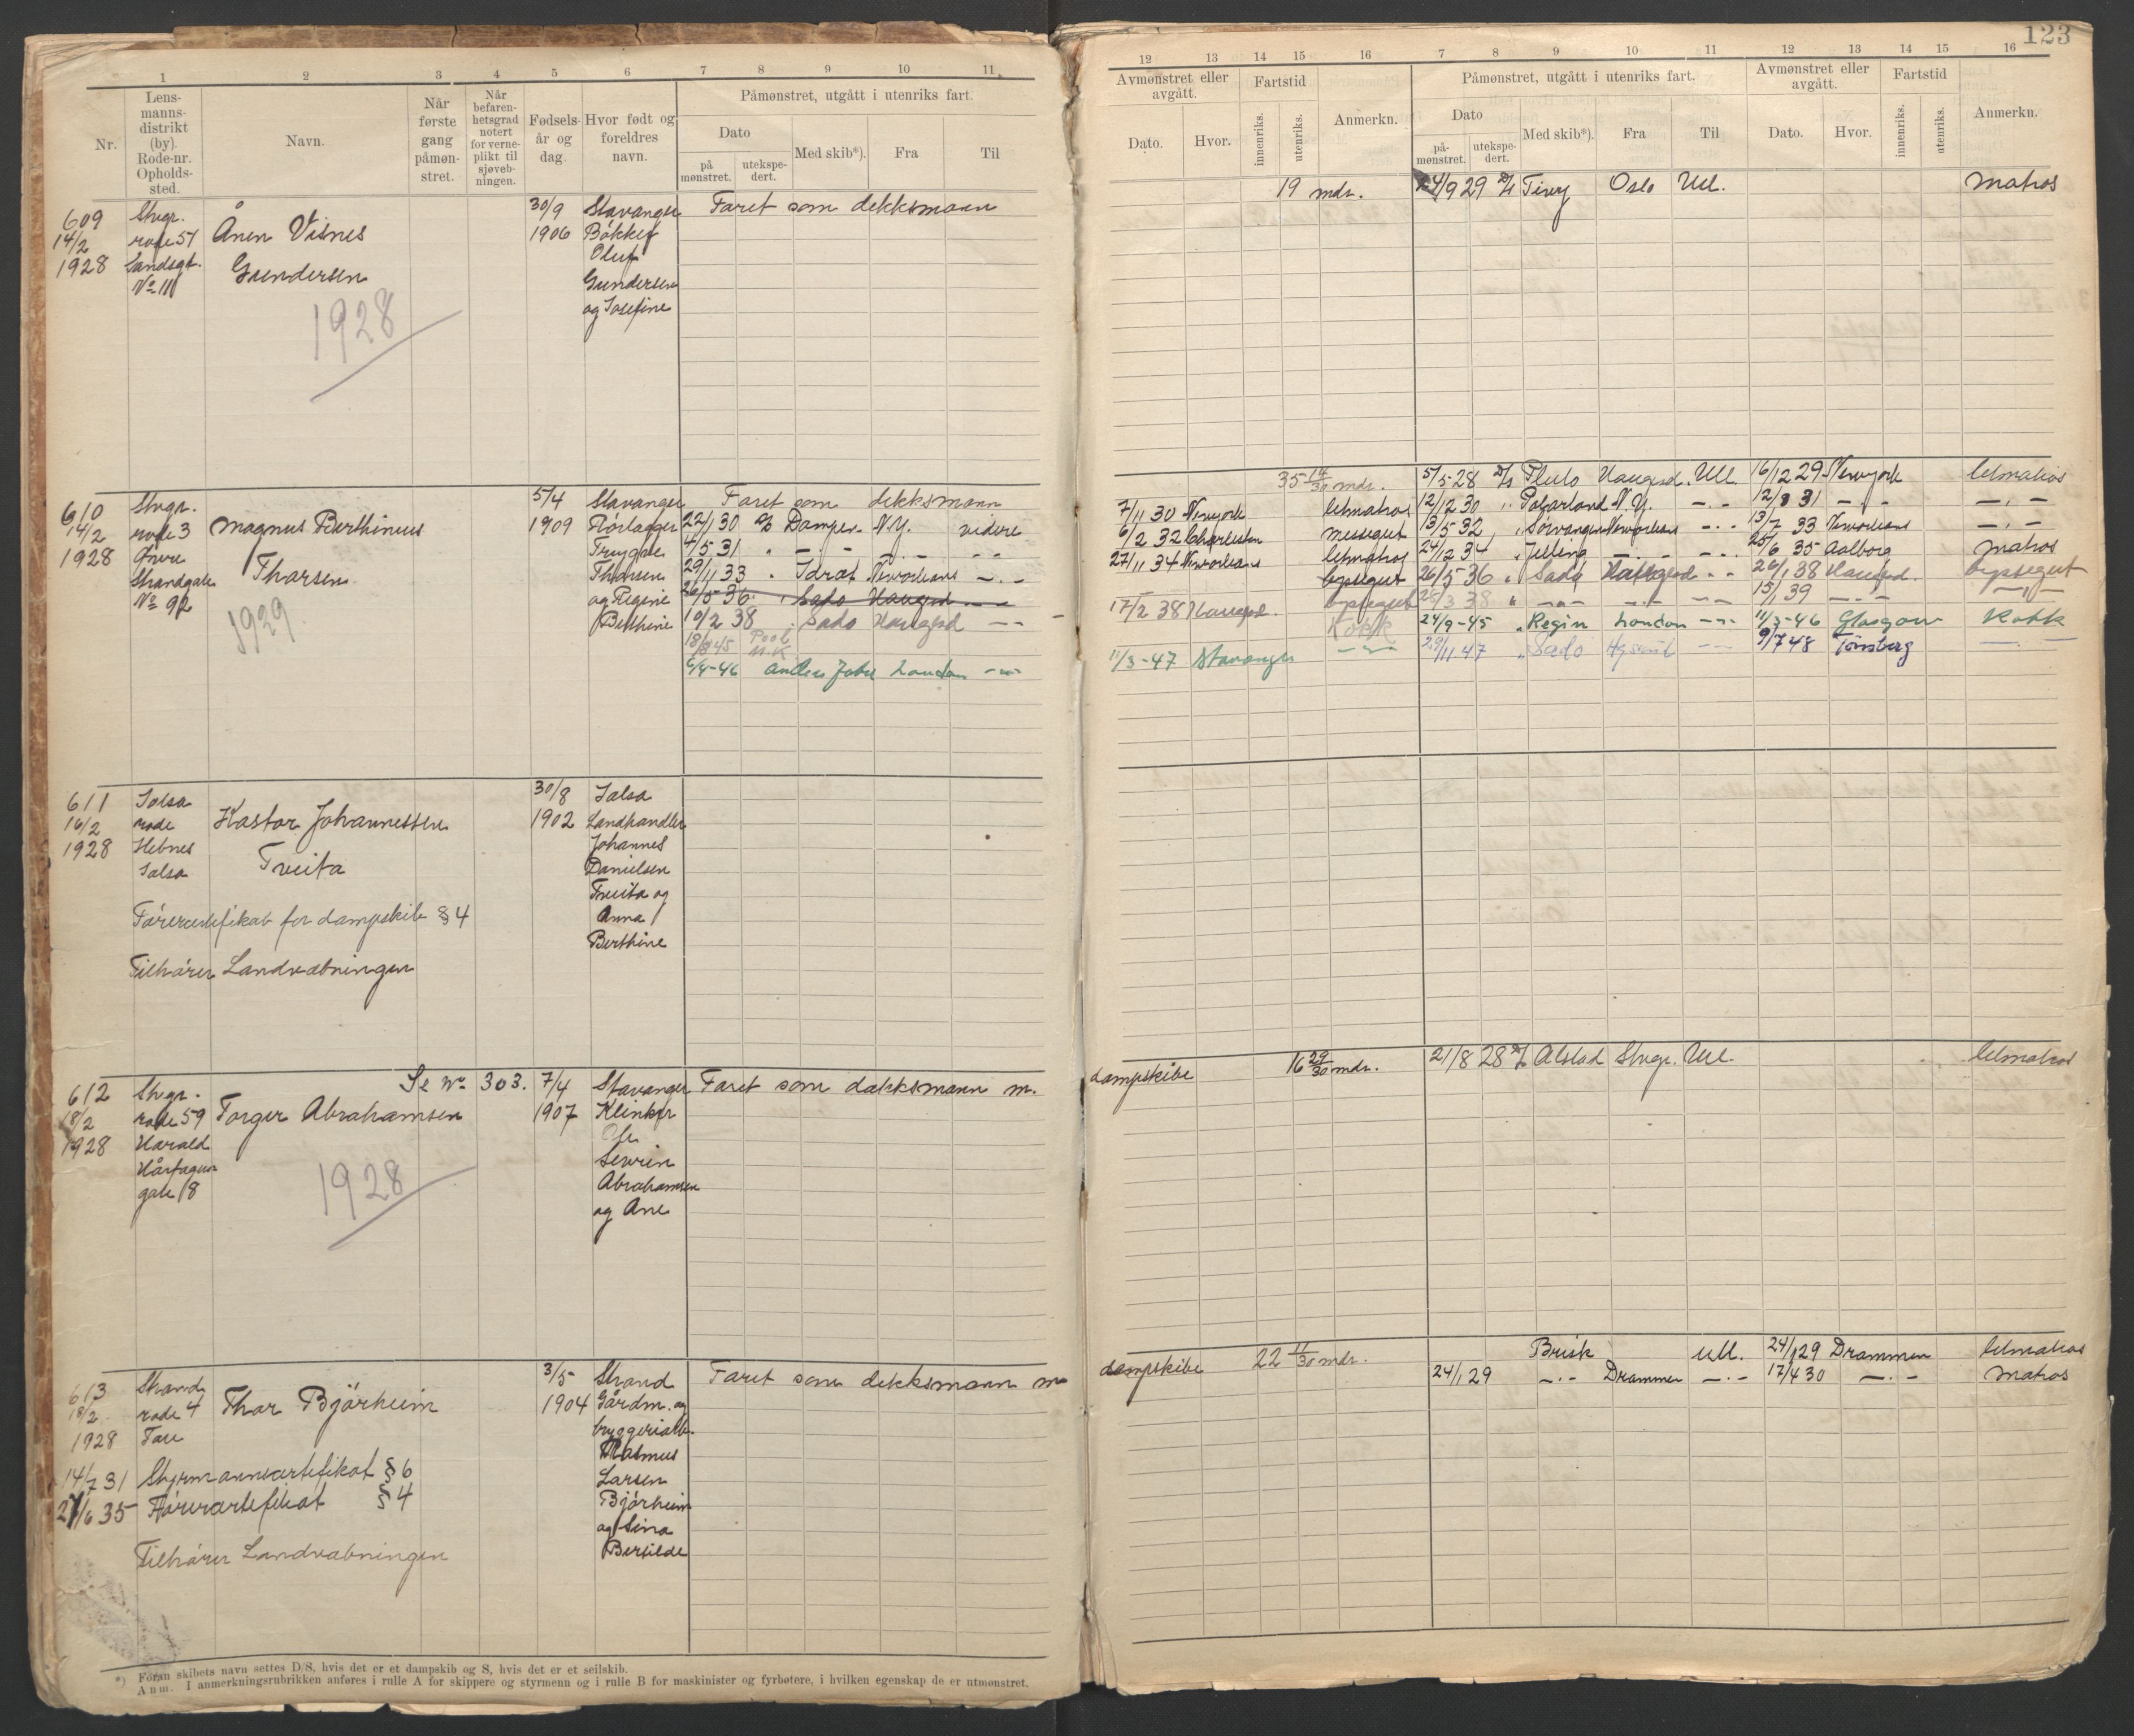 123
1 2 3 4 5 6 7 8 9 10 11
12 13 14 15 16 7 8 9 10 11 12 13 14 15 16
Nr.
Lens-
manns-
distrikt
(by).
Rode-nr.
Opholds-
sted.
Navn.
Når
første
gang
påmøn-
stret.
Når
befaren-
hetsgrad
notert
for verne-
plikt til
sjøveb-
ningen.
Fødsels-
år og
dag.
Hvor født og
foreldres
navn.
Påmønstret, utgått i utenriks fart.
Dato
på
mønstret.
utekspe-
dert.
Med skib*).
Fra
Til
Avmønstret eller
avgått.
Dato.
Hvor.
Fartstid
innenriks.
utenriks.
Anmerkn.
Påmønstret, utgått i utenriks fart.
Dato
på-
mønstret.
utekspe-
dert.
Med skib*).
Fra
Til
Avmønstret eller
avgått.
Dato.
Hvor.
Fartstid
innenriks.
utenriks.
Anmerkn.
609
14/2
1928
Stvgr.
rode 51
Sandsgt.
No 11
Ånen Visnes
Gundersen
1928
30/9
1906
Stavanger
Bøkker
Oluf
Gundersen
og Josefine
Faret som dekksmann
19 mdr.
24/9 29 D/S Tivy Oslo Utl.
Matros
610
14/2
1928
Stvgr.
rode 3
Øvre
Strandgate
No 92
Magnus Berthinius
Thorsen
1929
5/4
1909
Stavanger
Trygve
Thorsen
og Regine
Berthine
Faret som dekksmann
22/1 30 D/S Damper. N.Y. videre
4/5 31 " -.- -.- -.-
29/11 33 " Idræt Neworleans -.-
26/5 36 " Sado Haugesd -.-
10/2 38 " Sado Haugesd -.-
18/8 45 Pool
U.K.
6/4-46 Anders Jahre London -"-
35 14/30 mdr.
7/11 30 Newyork letmatros
6/2 32 Charleston messegut
27/11 34 Neworleans letmatros
byssegut
17/2 38 Haugesd. byssegut
Kokk
11/3-47 Stavanger -"-
5/5-28 D/S Pluto Haugesd. Utl. 16/12 29 Newyork letmatros
12/12 30 " Polarland N.Y. -.- 12/8 31 -.- -.-
13/5 32 " Sørvangen Neworleans -.- 13/7 33 Neworleans -.-
24/12 34 " Jelling -.- -.- 25/6 35 Aalborg Matros
26/5 36 " Sado Haugesd -.- 26/1 38 Haugesd. byssegut
25/3 38 " -.- -.- -.- 13/1 39 -.- -.-
24/9-45 " Regin London -"- 11/3-46 Glasgow Kokk
29/11 47 " Sado -.- 9/7 48 Tønsberg -.-
611
16/2
1928
Jelsa
rode
Hebnes
Jelsa
Kastor Johannessen
Tveita
Førercertifikat for dampskib § 4
Tilhører Landvæbningen
30/8
1902
Jelsa
Landhandler
Johannes
Danielsen
Tveita og
Anna
Berthine
612
18/2
1928
Stvgr.
rode 59
Harald
Hårfagres
gate 18
Se No 303.
Torger Abrahamsen
1928
7/4
1907
Stavanger
Klinker
Ole
Severin
Abrahamsen
og Ane
Faret som dækksmann m.
dampskibe
16 29/30 mdr.
21/8 28 D/S Alstad Stvgr. Utl.
letmatros
613
18/2
1928
Strand
rode 4
Tau
Thor Bjørheim
14/7 31 Styrmannscertifikat § 6
27/6 35 Førercertifikat § 4
Tilhører Landvæbningen
3/5
1904
Strand
Gårdm. og
bryggeriarb.
Rasmus
Larsen
Bjørheim
og Sina
Bertilde
Faret som dekksmann m
dampskibe
22 11/30 mdr.
Brisk Utl. 24/1 29 Drammen letmatros
24/1 29 -.- Drammen -.- 17/4 30 -.- Matros
*) Foran skibets navn settes D/S, hvis det er et dampskib og S, hvis det er et seilskib.
Anm. I anmerkningsrubrikken anføres i rulle A for skippere og styrmenn og i rulle B for maskinister og fyrbøtere, i hvilken egenskap de er utmønstret.